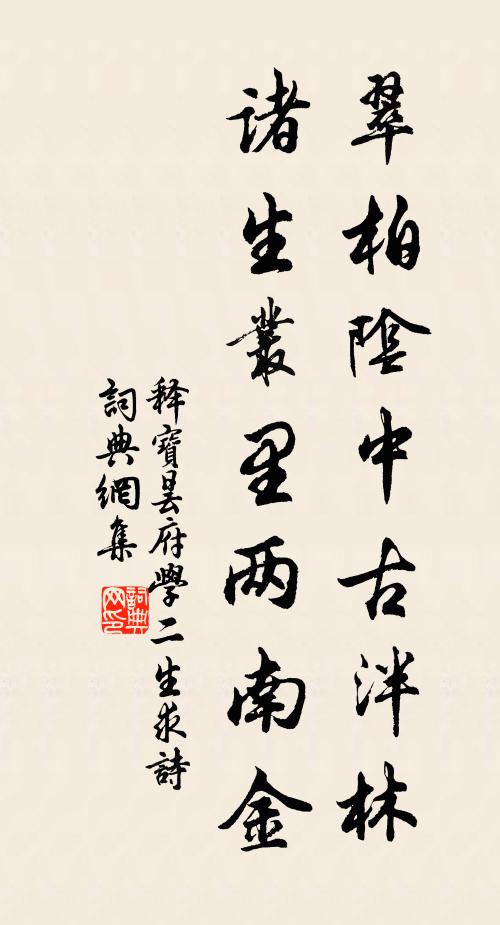 翠柏陰中古泮林
諸生叢里两南金
释寶曇府學二生求詩
詞典網集
詞典网印